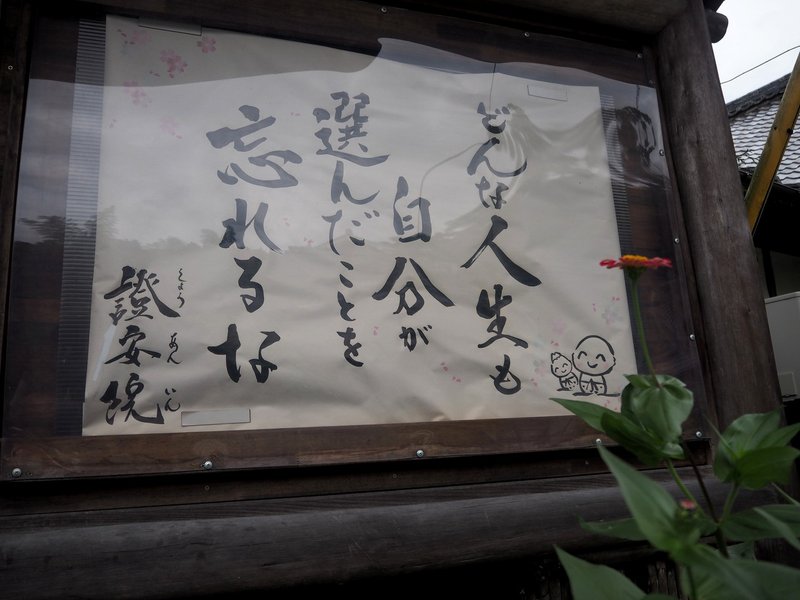 どんな人生も
自分が
選んだことを
忘れるな
證安院
しょう あん いん